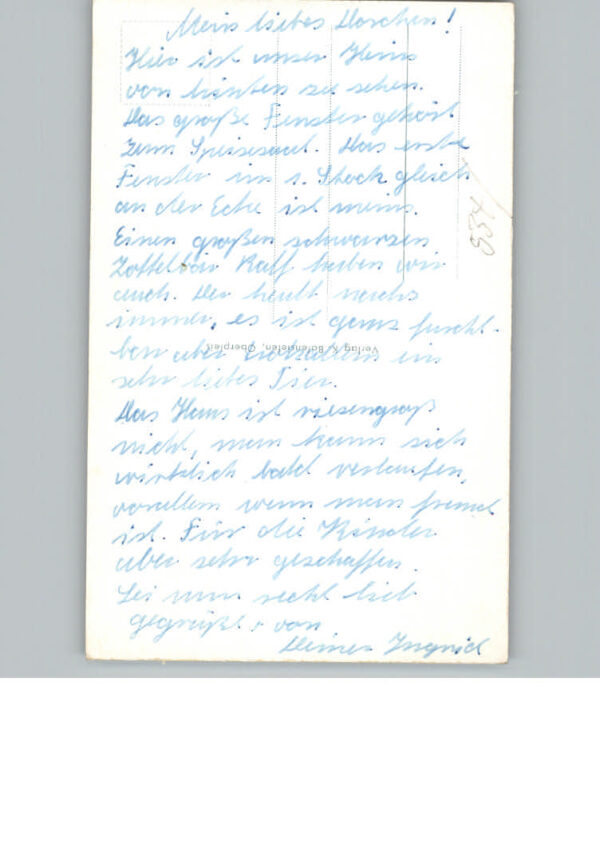 Mein liebes Dorchen!
Hier ist unser Heim
von hinten zu sehen.
Das große Fenster gehört
zum Speisesaal. Das erste
Fenster im 1. Stock gleich
an der Ecke ist meins.
Einen großen schwarzen
Zottelbär Ralf haben wir
auch. Der heult nachts
immer, es ist ganz furcht-
bar aber trotzallem ein
sehr liebes Tier.
Das Haus ist riesengroß
nicht, man kann sich
wirklich bald verlaufen,
vorallem wenn man fremd
ist. Für die Kinder
aber sehr geschaffen.
Sei nun recht lieb
gegrüßt von
Deiner Ingrid
534/
Oberpleis
Verlag K.